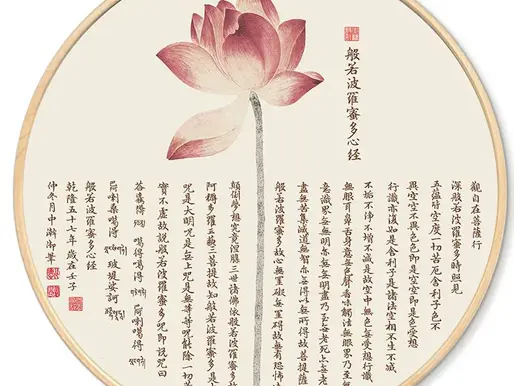 般若波羅蜜多心经
觀自在菩薩行
深般若波羅蜜多時照見
五蘊皆空度一切苦厄舍利子色不
異空空不異色色即是空空即是色受想
行識亦復如是舍利子是諸法空相不生不滅
不垢不淨不增不減是故空中無色無受想行識
無眼耳鼻舌身意無色聲香味觸法無眼界乃至無
意識界無無明亦無無明盡乃至無老死亦無老
盡無苦集滅道無智亦無得以無所得故菩提
般若波羅蜜多故心無罣礙無罣礙故無有恐怖
顛倒夢想究竟涅槃三世諸佛依般若波羅蜜多
阿耨多羅三藐三菩提故知般若波羅蜜多是
咒是大明咒是無上咒是無等等咒能除一切苦
實不虛故說般若波羅蜜多咒即說咒曰
噶得噶得 喇噶得
喇桑噶得 玻堤娑訶
般若波羅蜜多心经
乾隆五十七年歲在壬子
仲冬月中澣御筆